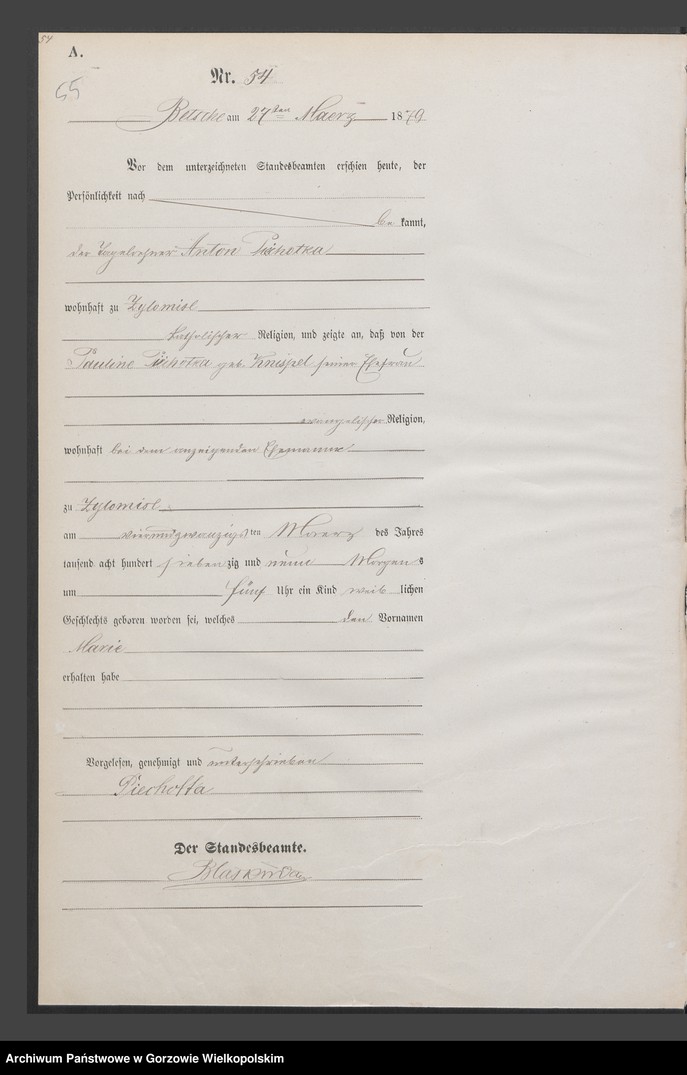 54
A.
55
Nr. 54
Betsche am 27ten Maerz 1879
Vor dem unterzeichneten Standesbeamten erschien heute, der
Persönlichkeit nach
be kannt,
der Tagelöhner Anton
wohnhaft zu Zylomisl
katholischer Religion, und zeigte an, daß von der
Pauline geb. Knispel seiner Ehefrau
evangelischer Religion,
wohnhaft bei dem anzeigenden Ehemanne
zu Zylomisl
am vierundzwanzigsten Maerz des Jahres
tausend acht hundert siebenzig und neun Morgens
um fünf Uhr ein Kind weiblichen
Geschlechts geboren worden sei, welches den Vornamen
Marie
erhalten habe
Vorgelesen, genehmigt und unterschrieben
Piecholta
Der Standesbeamte.
Archiwum Państwowe w Gorzowie Wielkopolskim